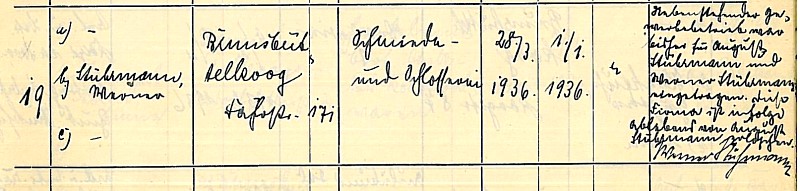 19
a) -
b) Stührmann,
Werner
c) -
Brunsbüt-
telkoog
171
Schmiede-
und Schlosserei
28/3.
1936.
1/1.
1936.
Nebenstehender Ge-
werbebetrieb war
bisher für August
Stührmann und
Werner Stührmann
eingetragen. Diese
Firma ist infolge
Ablebens von August
Stührmann, erloschen.
Werner Stührmann